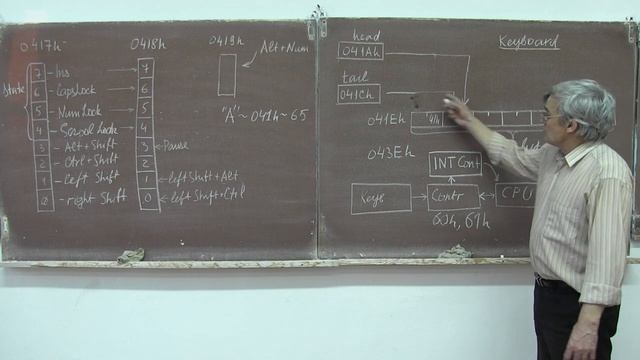 0417h
State
7 - Ins
6 - CapsLock
5 - NumLock
4 - Scrool Lock
3 - Alt + Shift
2 - Ctrl + Shift
1 - left Shift
0 - right Shift
0418h
7
6
5
4
3 Pause
2
1 left Shift + Alt
0 left Shift + Ctrl
0419h
Alt + Num
"A" ~ 041h ~ 65
Keyboard
head
041Ah
tail
041Ch
041Eh
043Eh
INT Cont
Keyb
Contr
CPU
60h, 61h